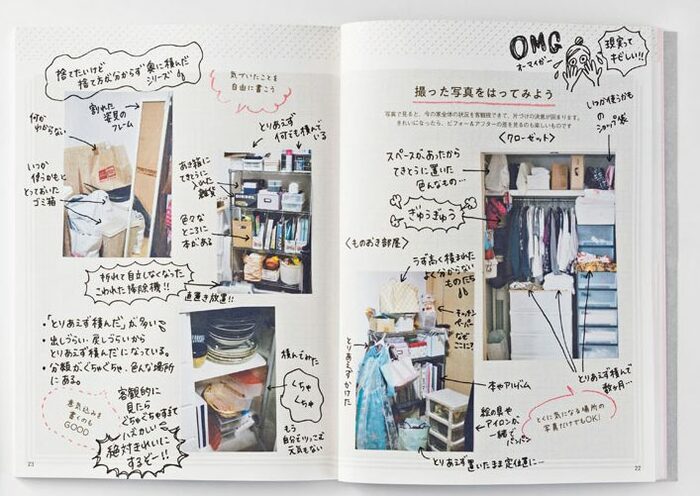 捨てたいけど
捨て方が分からず奥に積んだ
シリーズ
気づいたことを
自由に書こう
割れた
姿見の
フレーム
何か
わからない
いつか
使うかもと
とっておいた
ゴミ箱
とりあえず
何でも積んで
いる
あき箱に
てきとうに
入れた
雑貨
色々な
ところに
本がある
折れて自立しなくなった
こわれた掃除機!!
直置き放置!!
・「とりあえず積んだ」が多い
・出しづらい・戻しづらいから
とりあえず積んだになっている。
・分類がぐちゃぐちゃ・色んな場所
にある。
意気込みを
書くのも
GOOD
客観的に
見たら
ぐちゃぐちゃすぎて
ハズかしい
絶対きれいに
するぞー!!
積んでみた
ぐちゃ
ぐちゃ
もう
自分でツッこむ
元気もない
23
OMG
オーマイガー
現実って
キビしい!!
撮った写真をはってみよう
写真で見ると、今の家全体の状況を客観視できて、片づけの決意が固まります。
きれいになったら、ビフォー&アフターの差を見るのも楽しいものです
<クローゼット>
いつか使うかもの
ショップ袋
スペースがあったから
てきとうに置いた
色んなもの…
ぎゅうぎゅう
<ものおき部屋>
うず高く積まれた
よく分からない
ものたち
キッチン
ペーパー
なぜ
ここに?
とりあえずかけた
本やアルバム
とりあえず積んで
数ヶ月…
とくに気になる場所の
写真だけでもOK!
絵の具や
アイロンが
一緒で
パンパン
とりあえず置いたまま定位置に…
22